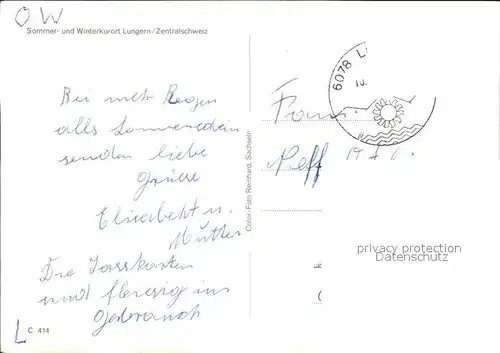 OW
Sommer- und Winterkurort Lungern/Zentralschweiz
Bei mehr Reegen
alls Sonnenschein
senden liebe
Grüsse
Elisabeht u.
Mutter
Die Jasskarten
sind fleissig im
Gebrauch
L
C 414
Color-Foto Reinhard, Sachseln
6078 L
10.
Fam.
Neff
privacy protection
Datenschutz